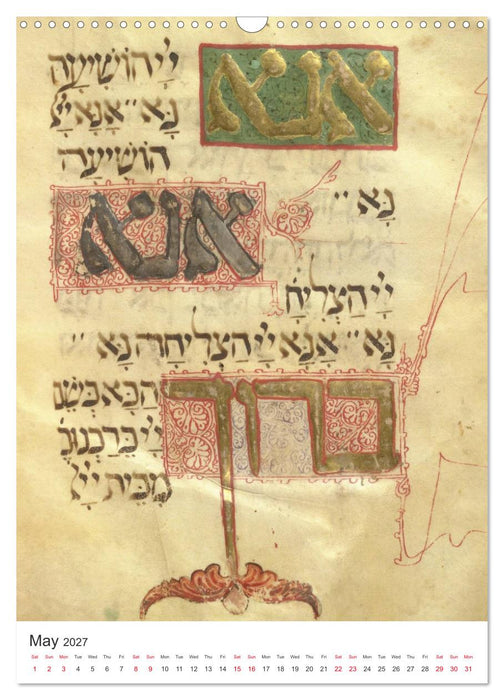 אנא יי הושיעה
נא אנא יי
הושיעה
נא
אנא
יי הצליח
נא אנא יי הצליחה נא
ברוך הבא בשם
יי ברכנוכם
מבית יי
May 2027
Sat Sun Mon Tue Wed Thu Fri Sat Sun Mon Tue Wed Thu Fri Sat Sun Mon Tue Wed Thu Fri Sat Sun Mon Tue Wed Thu Fri Sat Sun Mon
1 2 3 4 5 6 7 8 9 10 11 12 13 14 15 16 17 18 19 20 21 22 23 24 25 26 27 28 29 30 31